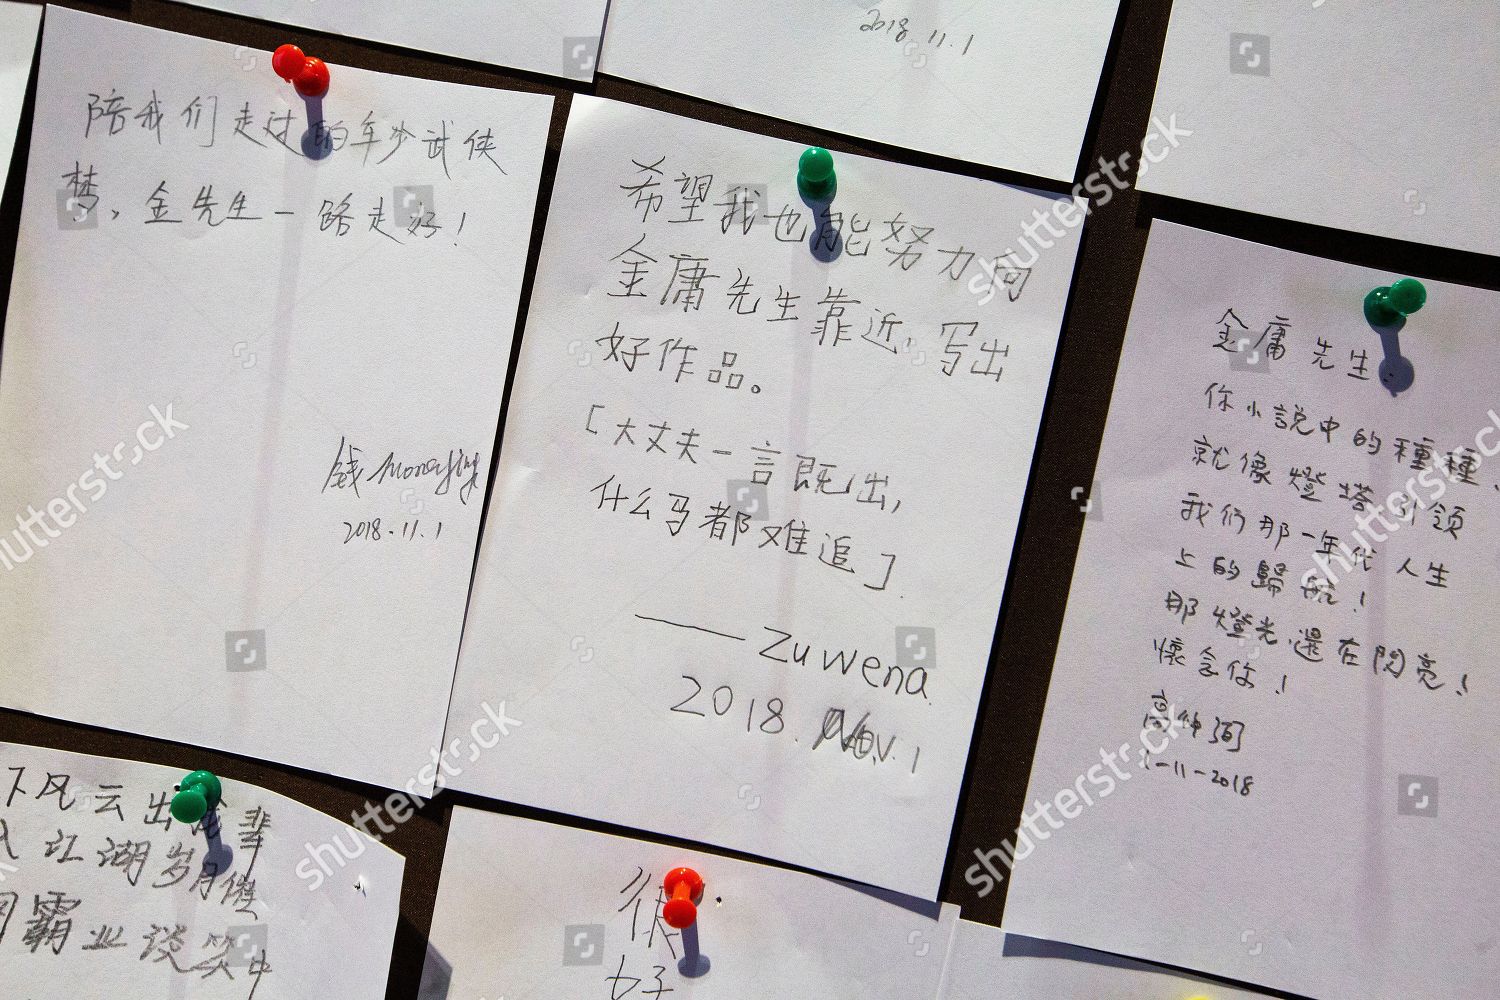 2018.11.1
陪我们走过的年少武侠
梦，金先生一路走好！
钱moneyjing
2018.11.1
希望我也能努力向
金庸先生靠近，写出
好作品。
「大丈夫一言既出，
什么马都难追」
——Zuwena
2018. Nov.1
金庸先生：
你小說中的種種、
就像燈塔引領
我们那一年代人生
上的歸航！
那燈光還在閃亮！
懷念你！
1-11-2018
下风云出我辈
入江湖岁月催
图霸业谈笑中
很
好
shutterstock
shutterstock
shutterstock
shutterstock
shutterstock
shutterstock